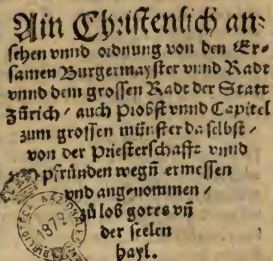 Ain Christenlich an⸗
sehen vnnd ordnung von den Er⸗
samen Burgermayster vnnd Radt
vnnd dem grossen Radt der Statt
Zürich / auch Probst vnnd Capitel
zum grossen münster da selbst /
von der Priesterschafft vnnd
pfründen wegñ ermessen
vnd angenommen /
zů lob gotes vñ
der seelen
hayl.
1872